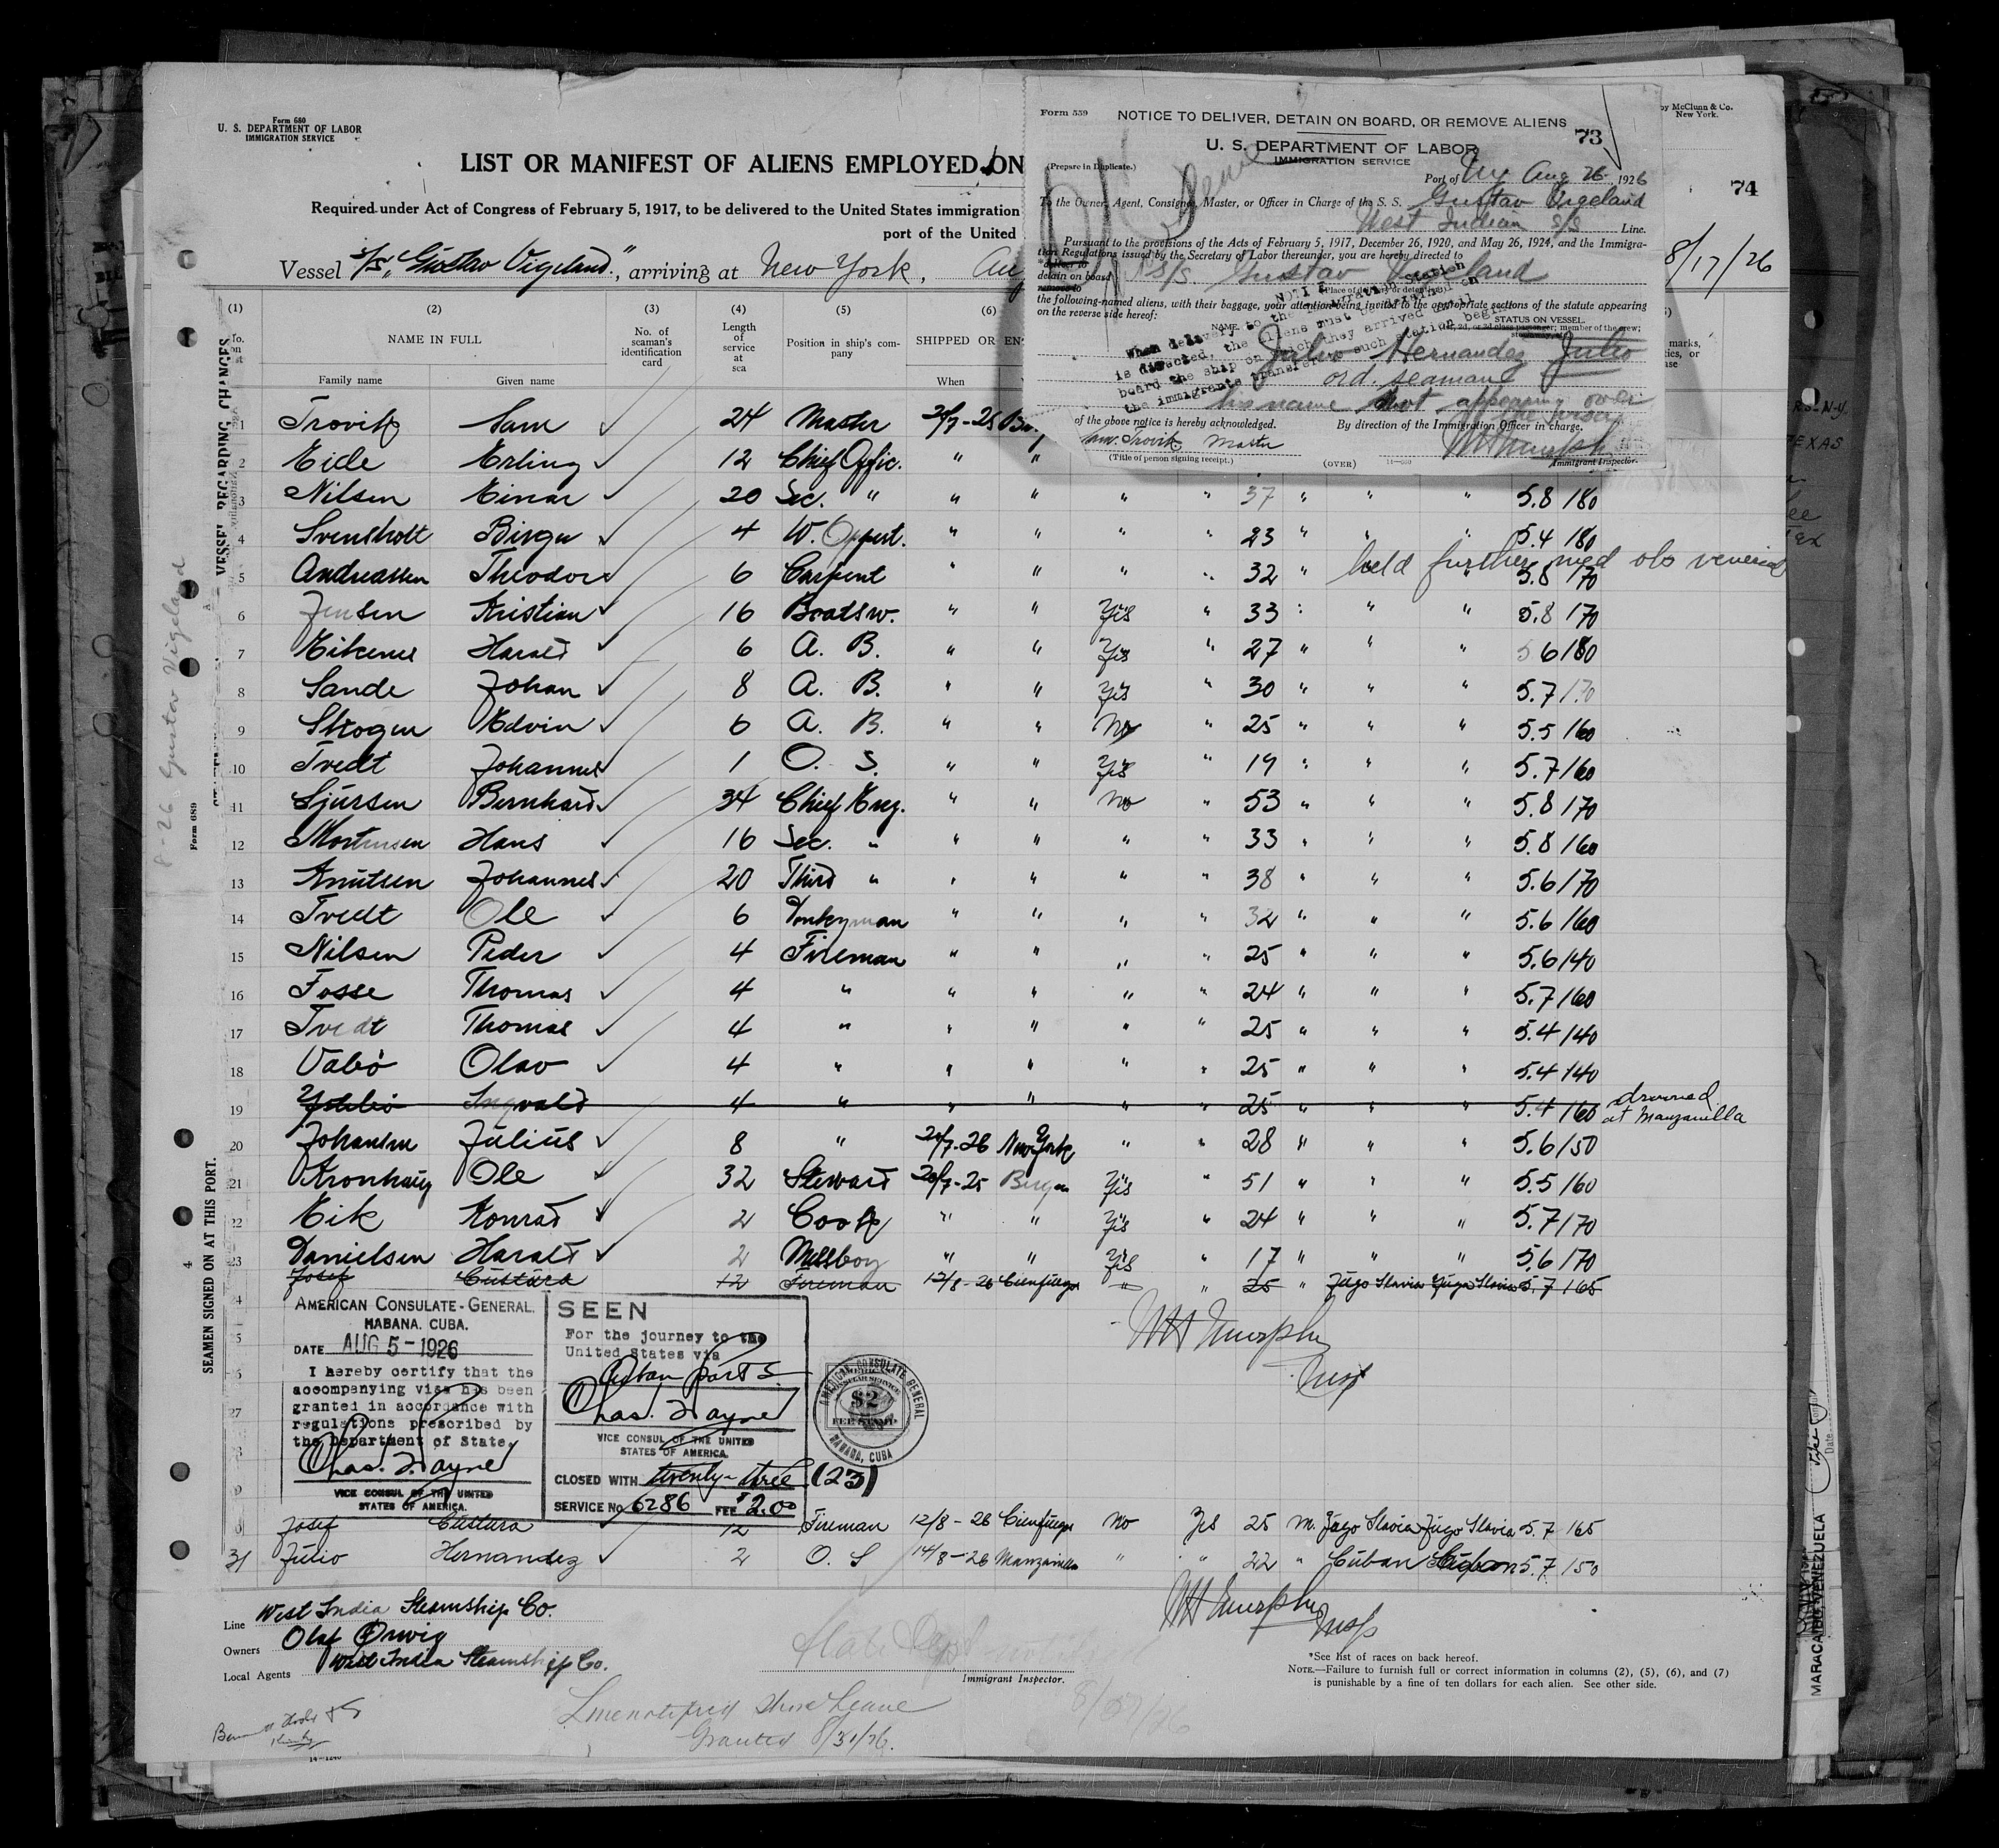 Form 680
U. S. DEPARTMENT OF LABOR
IMMIGRATION SERVICE
LIST OR MANIFEST OF ALIENS EMPLOYED ON
Required under Act of Congress of February 5, 1917, to be delivered to the United States immigration
port of the United
Vessel S/S. "Gustav Vigeland", arriving at New York, Au
by McClunn & Co.
New York.
74
8/17/26
Form 559
NOTICE TO DELIVER, DETAIN ON BOARD, OR REMOVE ALIENS
73
U. S. DEPARTMENT OF LABOR
IMMIGRATION SERVICE
(Prepare in Duplicate.)
Port of NY Aug 26 1926
To the Owner, Agent, Consignee, Master, or Officer in Charge of the S. S. Gustav Vigeland
West Indian S/S Line.
Pursuant to the provisions of the Acts of February 5, 1917, December 26, 1920, and May 26, 1924, and the Immigra-
tion Regulations issued by the Secretary of Labor thereunder, you are hereby directed to
detain on board S/S. Gustav Vigeland
(Place of delivery or detention)
the following-named aliens, with their baggage, your attention being invited to the appropriate sections of the statute appearing
on the reverse side hereof:
NOTICE
When delivery to the Immigration Station
is directed, the aliens must be detained on
board the ship on which they arrived until
the immigrants transfer to such station begins
NAME.
STATUS ON VESSEL.
Julio Hernandez Julio
ord. seaman
his name not appearing over
of the above notice is hereby acknowledged.
By direction of the Immigration Officer in charge.
Trovik Master
(Title of person signing receipt.)
(OVER)
Immigrant Inspector.
(1) (2) (3) (4) (5) (6)
NAME IN FULL
Family name Given name
No. of seaman's identification card
Length of service at sea
Position in ship's com-pany
SHIPPED OR EN
When
1 Trovik Sam 24 Master 28/7-25
2 Eide Erling 12 Chief Offic. " "
3 Nilsen Einar 20 Sec. " " " " " 37 " " " 5.8 180
4 Svensholt Birger 4 W. Operat. " " " " 23 " " " 5.4 180
held further med obs venereal
5 Andreassen Theodor 6 Carpent " " " " 32 " " " 5.8 170
6 Jensen Kristian 16 Boatsw. " " Yes " 33 " " " 5.8 170
7 Eikenes Harald 6 A. B. " " Yes " 27 " " " 5 6 180
8 Sande Johan 8 A. B. " " Yes " 30 " " " 5.7 170
9 Skogen Edvin 6 A. B. " " No " 25 " " " 5.5 160
10 Tvedt Johannes 1 O. S. " " Yes " 19 " " " 5.7 160
11 Sjursen Bernhard 34 Chief Eng. " " No " 53 " " " 5.8 170
12 Mortensen Hans 16 Sec. " " " " " 33 " " " 5.8 160
13 Knutsen Johannes 20 Third " " " " " 38 " " " 5.6 170
14 Tvedt Ole 6 Donkyman " " " " 32 " " " 5.6 160
15 Nilsen Peder 4 Fireman " " " " 25 " " " 5.6 140
16 Fosse Thomas 4 " " " " " 24 " " " 5.7 160
17 Tvedt Thomas 4 " " " " " 25 " " " 5.4 140
18 Valeö Olav 4 " " " " " 25 " " " 5.4 140
19 Ingvald 4 " " " " " 25 " " " 5.4 160 drowned
at Manzanilla
20 Johansen Julius 8 " 20/7-26 New York " " 28 " " " 5.6 150
21 Kronhaug Ole 32 Steward 28/7-25 Bergen Yes " 51 " " " 5.5 160
22 Eik Konrad 2 Cook " " Yes " 24 " " " 5.7 170
23 Danielsen Harald 2 Messboy " " Yes " 17 " " " 5.6 170
Josef Custura 12 Fireman 12/8-26 Cienfuegos " " 25 " Jugo Slavia Jugo Slavia 5.7 165
AMERICAN CONSULATE-GENERAL.
HABANA. CUBA.
DATE AUG 5-1926
I hereby certify that the
accompanying visa has been
granted in accordance with
regulations prescribed by
the Department of State.
VICE CONSUL OF THE UNITED
STATES OF AMERICA.
SEEN
For the journey to the
United States via
Cuban ports
VICE CONSUL OF THE UNITED
STATES OF AMERICA.
CLOSED WITH twenty-three (23)
SERVICE No. 6286 FEE $2.00
AMERICAN CONSULATE GENERAL
$2
FEE STAMP
HABANA, CUBA
WH Murphy
Insp
Josef Custura 12 Fireman 12/8-26 Cienfuegos No Yes 25 M. Jugo Slavia Jugo Slavia 5.7 165
31 Julio Hernandez 2 O. S 14/8-26 Manzanillo " " 22 " Cuban Cuban 5.7 150
WH Murphy
Insp
Line West India Steamship Co.
Owners Olaf Orvig
Local Agents West India Steamship Co.
Immigrant Inspector.
*See list of races on back hereof.
NOTE.—Failure to furnish full or correct information in columns (2), (5), (6), and (7)
is punishable by a fine of ten dollars for each alien. See other side.
Line notified Shore Leave
Granted 8/31/26.
14-1240
VESSEL REGARDING CHANGES
SEAMEN SIGNED ON AT THIS PORT.
Form 689
8-26 Gustav Vigeland
MARACAIBO, VENEZUELA
Date
TEXAS